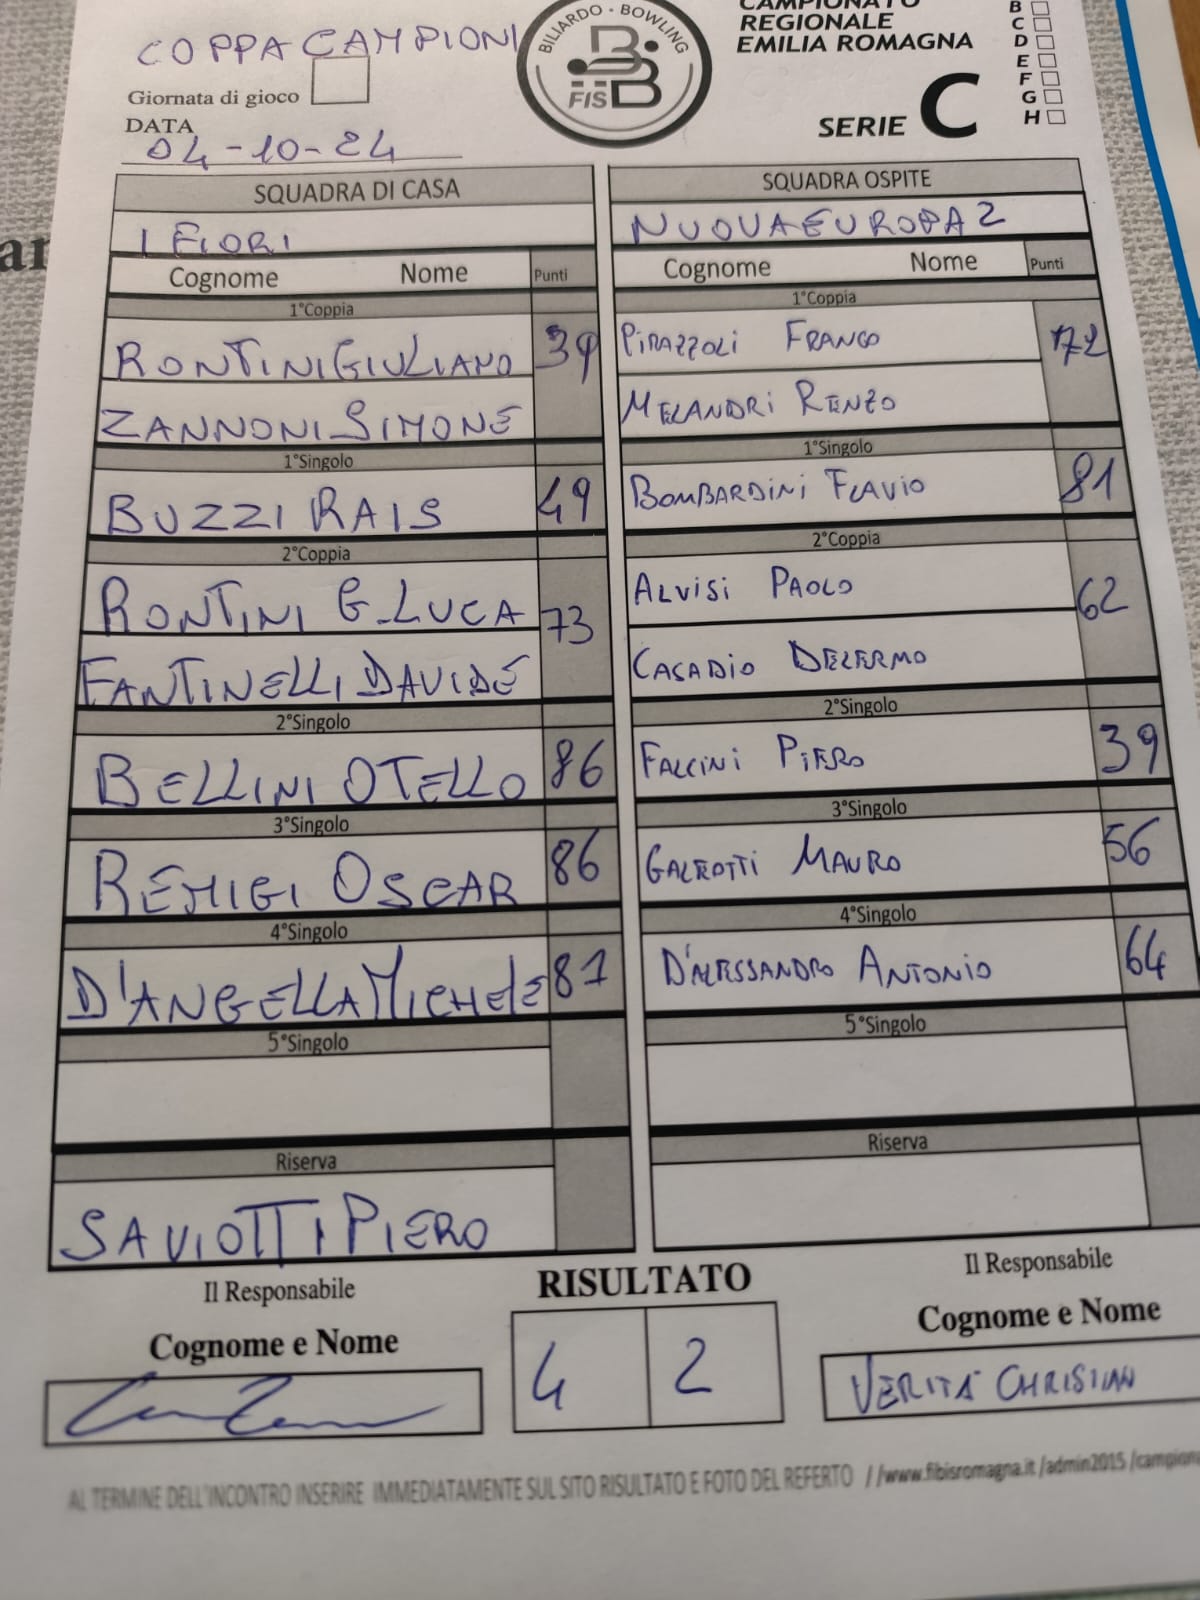 COPPA CAMPIONI
BILIARDO · BOWLING
FISBB
REGIONALE
EMILIA ROMAGNA
SERIE C
B
C
D
E
F
G
H
Giornata di gioco
DATA
04-10-24
SQUADRA DI CASA SQUADRA OSPITE
I FIORI NUOVA EUROPA 2
Cognome Nome Punti Cognome Nome Punti
1°Coppia 1°Coppia
RONTINI GIULIANO 39 PIRAZZOLI FRANCO 72
ZANNONI SIMONE MELANDRI RENZO
1°Singolo 1°Singolo
BUZZI RAIS 49 BOMBARDINI FLAVIO 81
2°Coppia 2°Coppia
RONTINI G.LUCA 73 ALVISI PAOLO 62
FANTINELLI DAVIDE CASADIO DELERMO
2°Singolo 2°Singolo
BELLINI OTELLO 86 FALCINI PIERO 39
3°Singolo 3°Singolo
REMIGI OSCAR 86 GALEOTTI MAURO 56
4°Singolo 4°Singolo
D'ANGELLA MICHELE 81 D'ALESSANDRO ANTONIO 64
5°Singolo 5°Singolo
Riserva Riserva
SAVIOTTI PIERO
Il Responsabile RISULTATO Il Responsabile
Cognome e Nome Cognome e Nome
4 2 VERITA' CHRISTIAN
AL TERMINE DELL'INCONTRO INSERIRE IMMEDIATAMENTE SUL SITO RISULTATO E FOTO DEL REFERTO //www.fibisromagna.it/admin2015/campiona